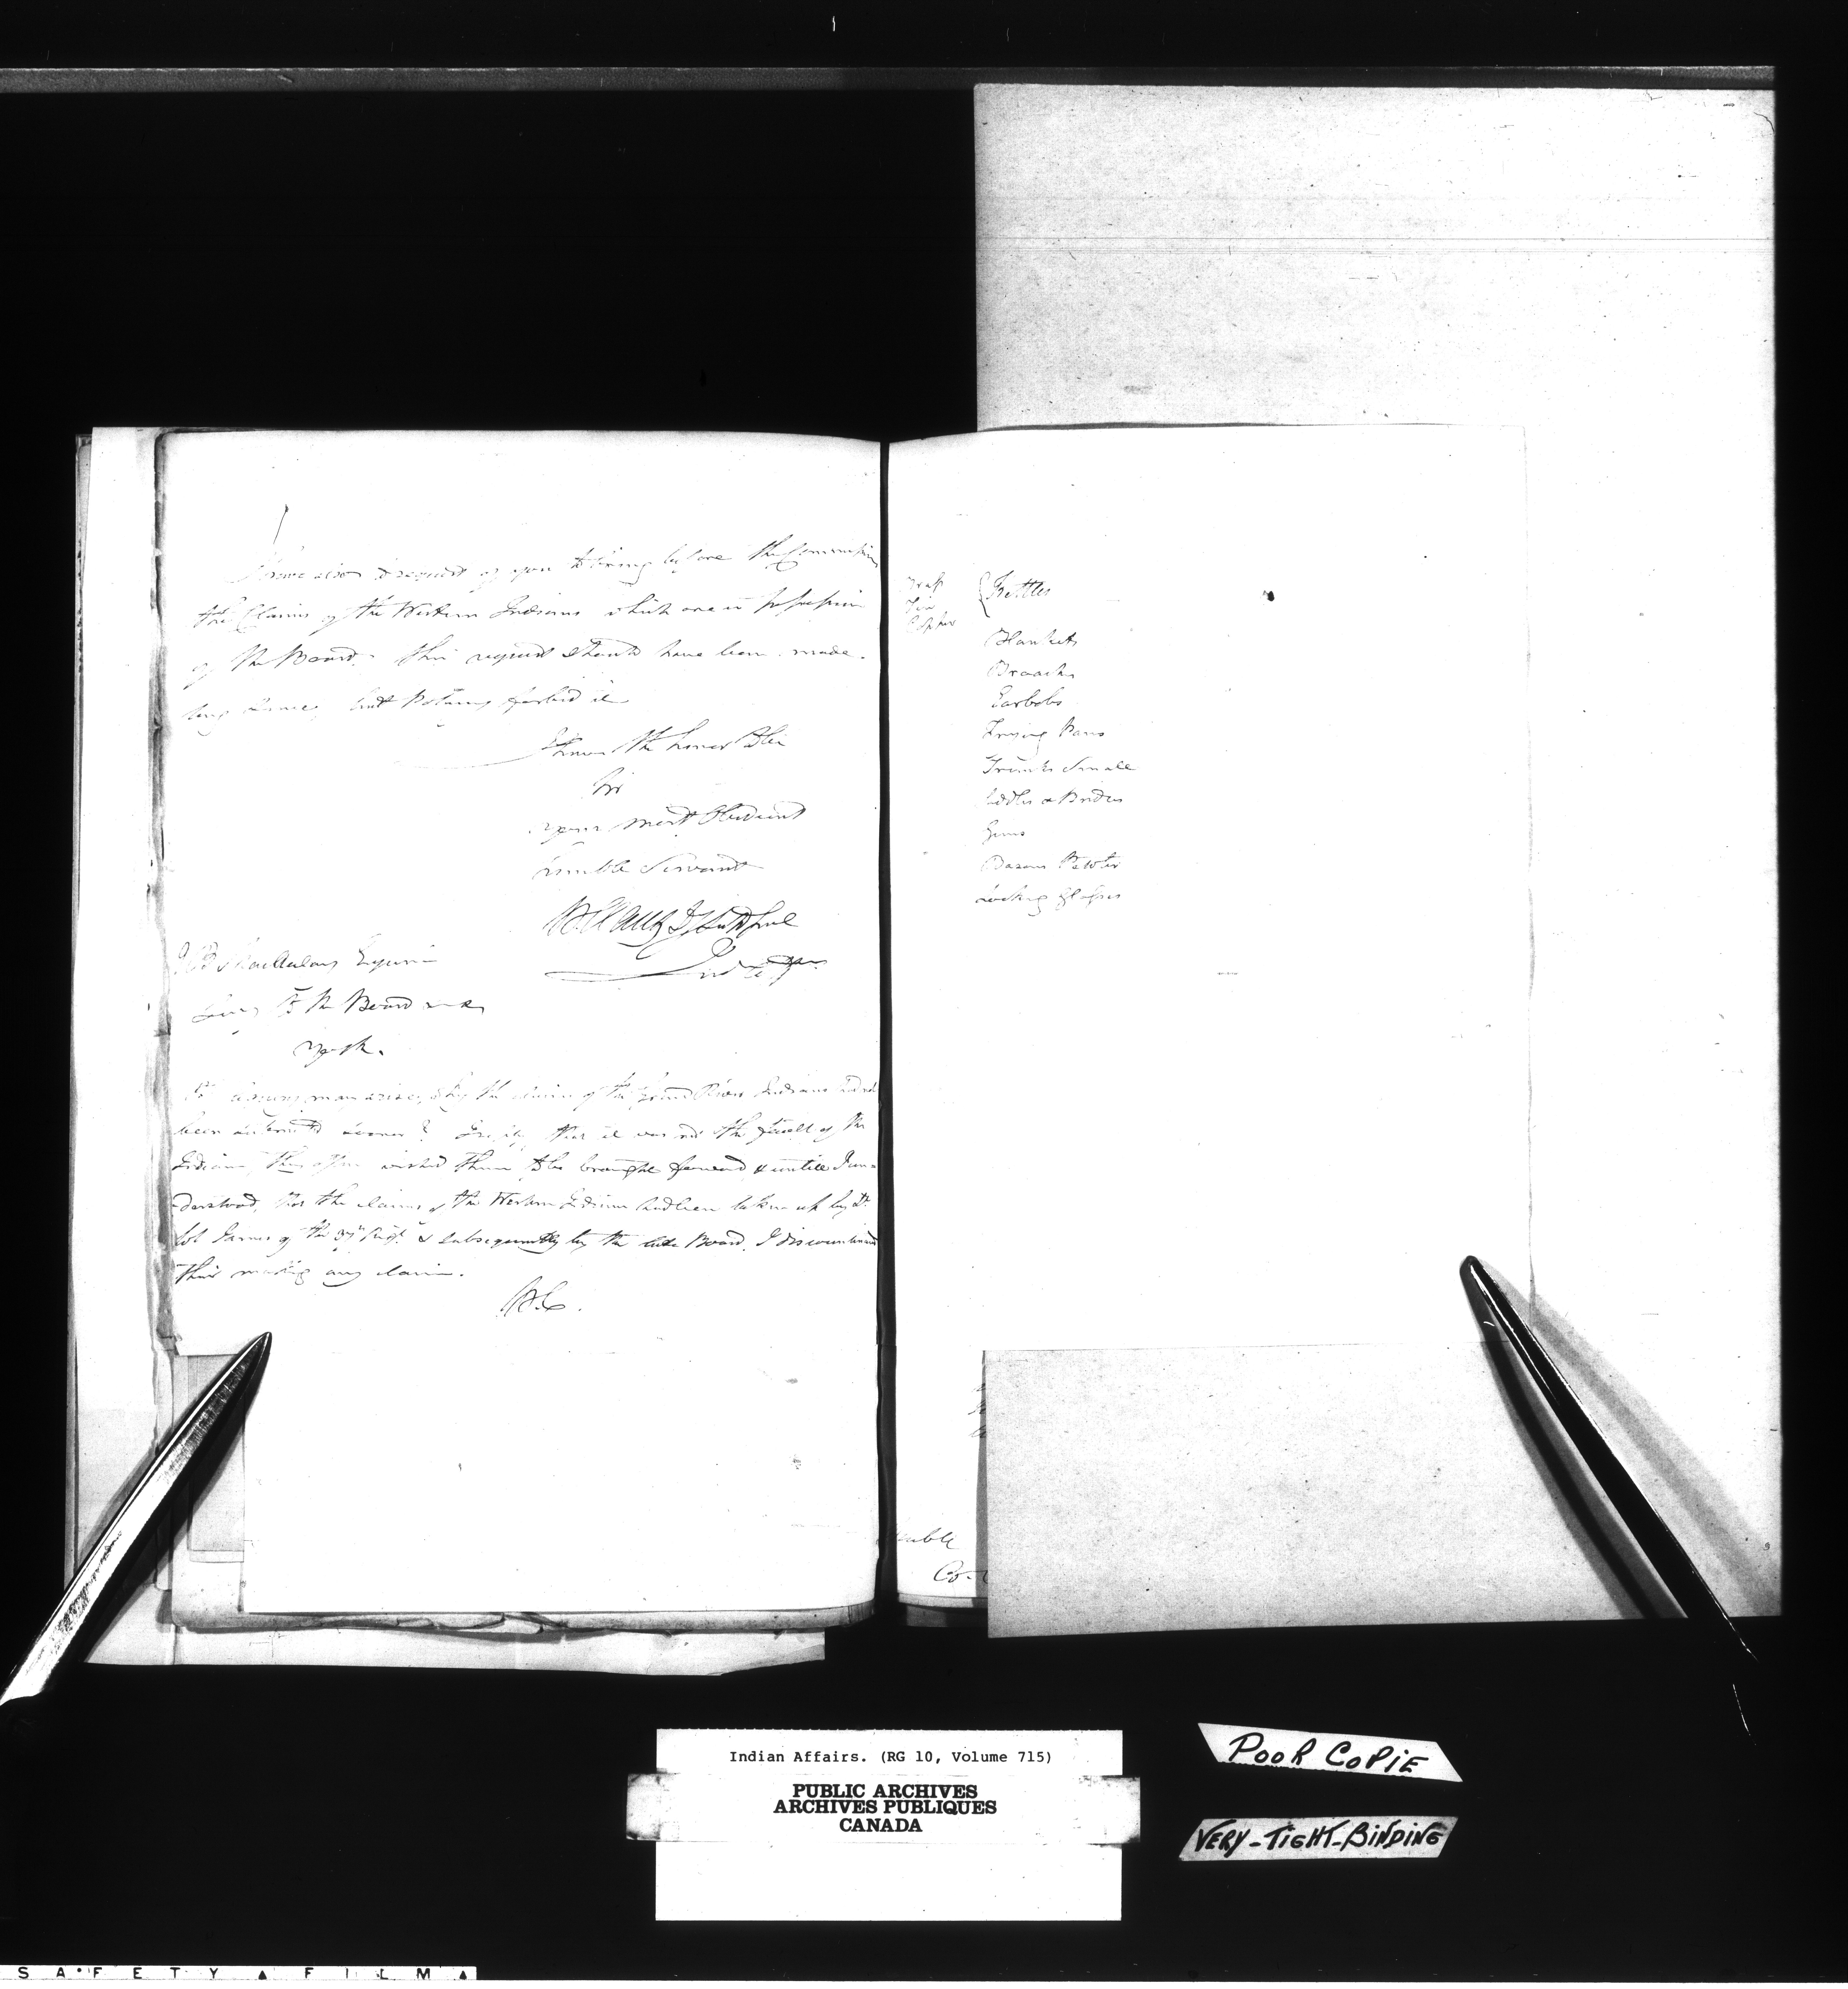 I have also to request of you to bring before the Commission
the Claims of the Western Indians which are in possession
of the Board. This request should have been made
long since, but forbid it
I have the honor to be
Sir
your most Obedient
humble Servant
Esquire
to the Board
York.
may arise, why the claim of the Grand River Indians had not
been sooner? that it was not the fault of the
Indians, they often wished them to be brought forward, & untill I un-
derstood, that the claims of the Western Indians had been taken up by Lt.
Col James of the 37th Regt. & subsequently by the late Board, I discountenanced
their making any claim.
W.C.
Brass
Tin
Copper
{Kettles
Blankets
Broaches
Earbobs
Frying Pans
Trunks Small
Saddles & Bridles
Guns
Basons Pewter
Looking Glasses
umble
Co.
Indian Affairs. (RG 10, Volume 715)
PUBLIC ARCHIVES
ARCHIVES PUBLIQUES
CANADA
POOR COPIE
VERY-TIGHT-BINDING
SAFETY FILM